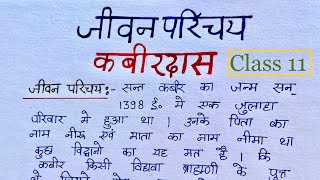 जीवन परिचय
कबीरदास Class 11
जीवन परिचय:- सन्त कबीर का जन्म सन्
1398 ई. मे एक जुलाहा
परिवार मे हुआ था। उनके पिता का
नाम नीरू एवं माता का नाम नीमा था
कुछ विद्वानो का यह मत है। कि
कबीर किसी विधवा ब्राह्मणी के पुत्र